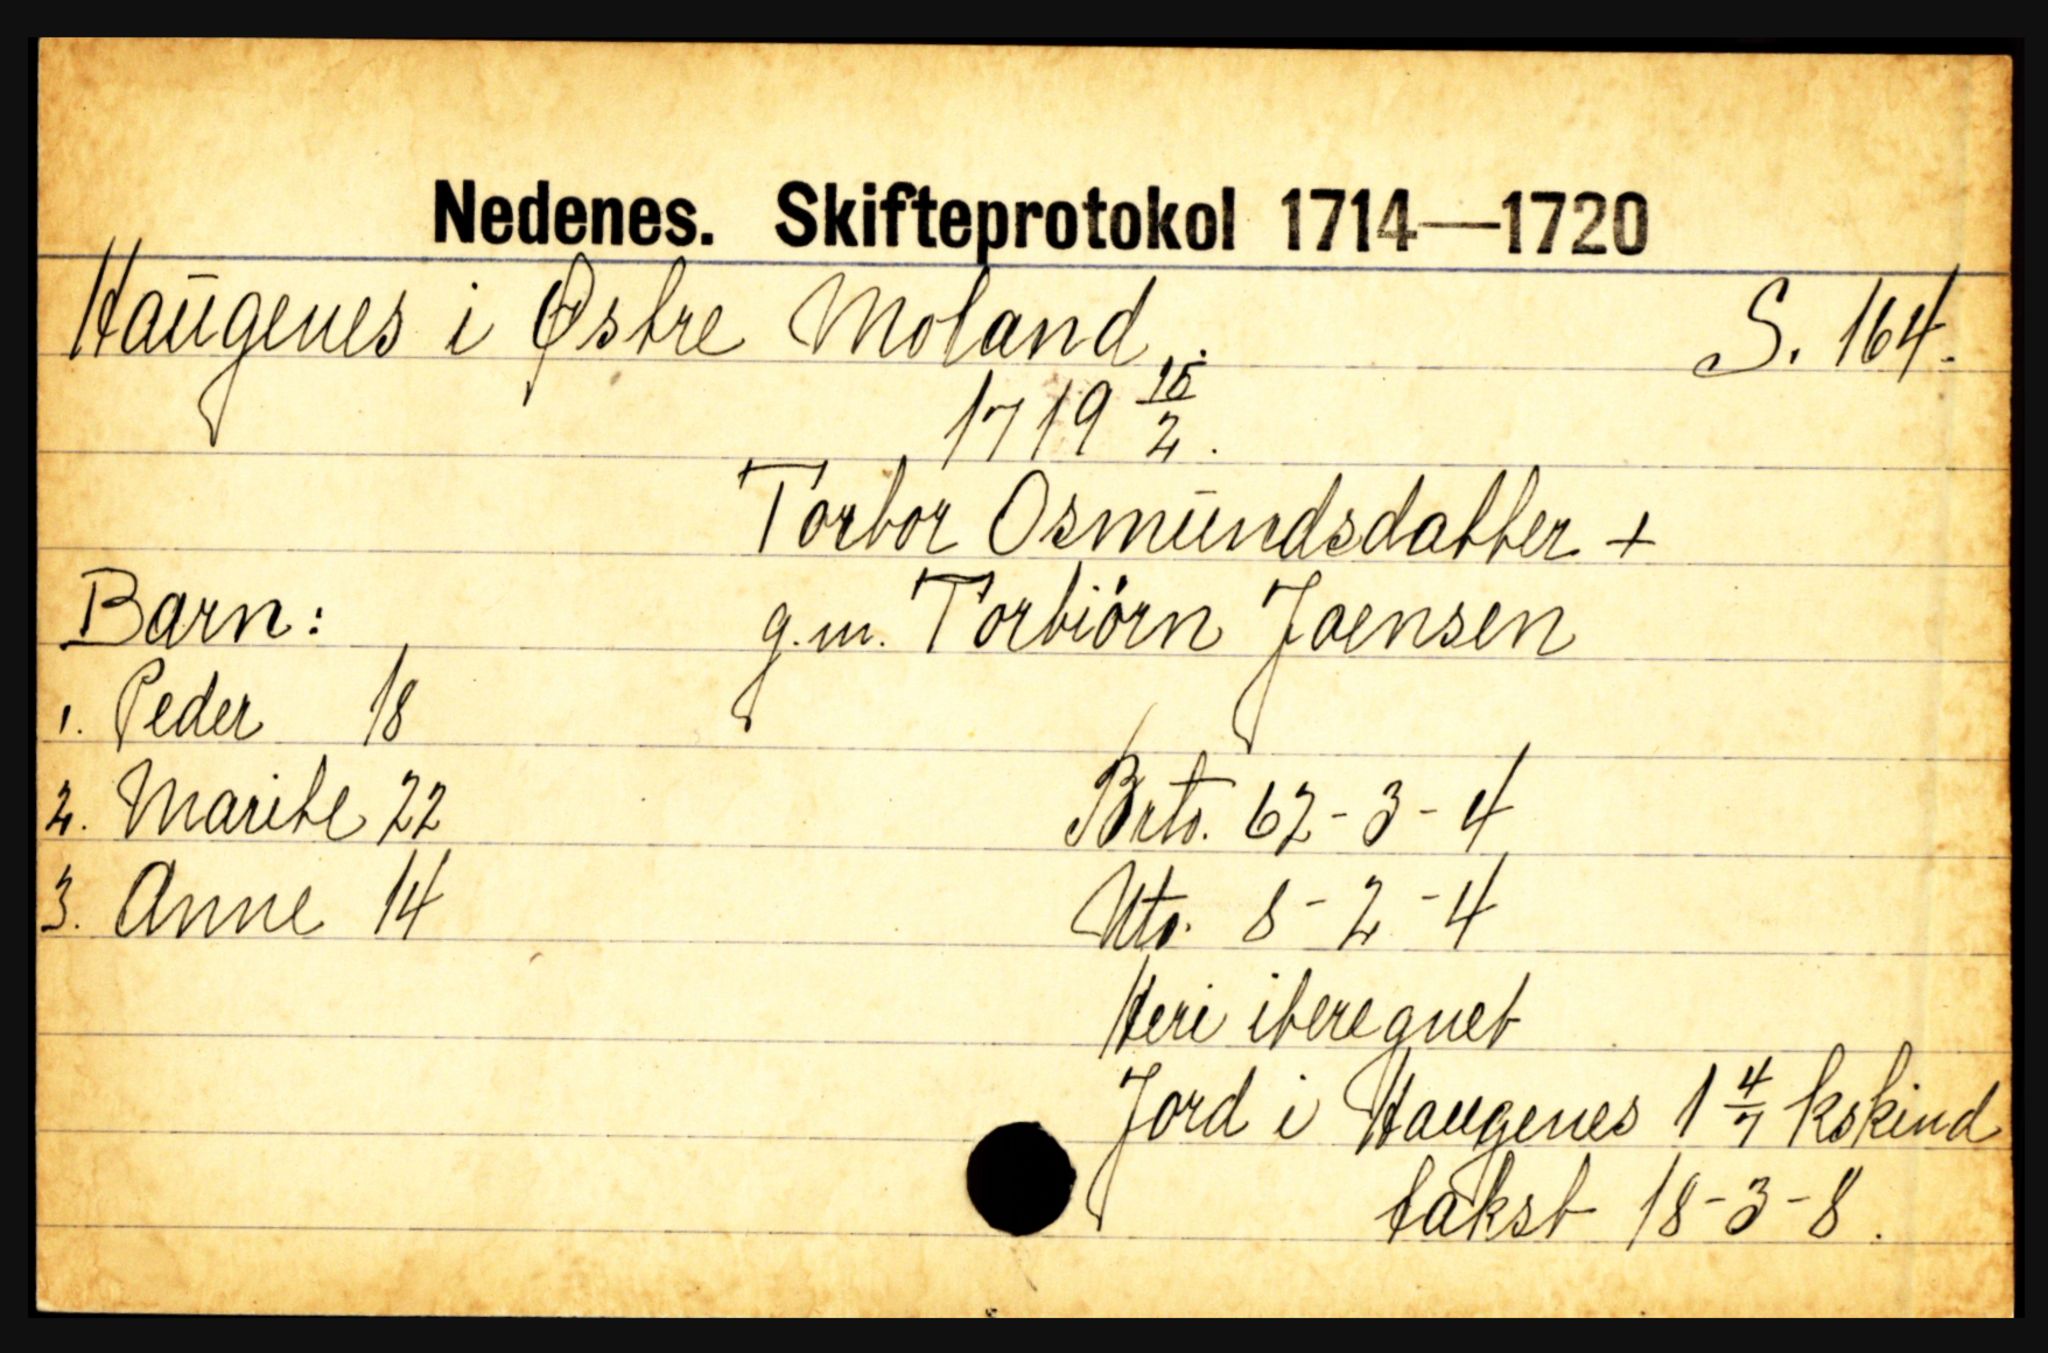 Nedenes. Skifteprotokol 1714—1720
Haugenes i Østre Moland. S. 164.
1719 15/2.
Torbor Osmundsdatter +
g.m. Torbiörn Joensen
Barn:
1. Peder 18
2. Marite 22
3. Anne 14
Brto. 62-3-4
Nto. 8-2-4
Heri iberegnet
Jord i Haugenes 1 4/7 kskind
takst 18-3-8.